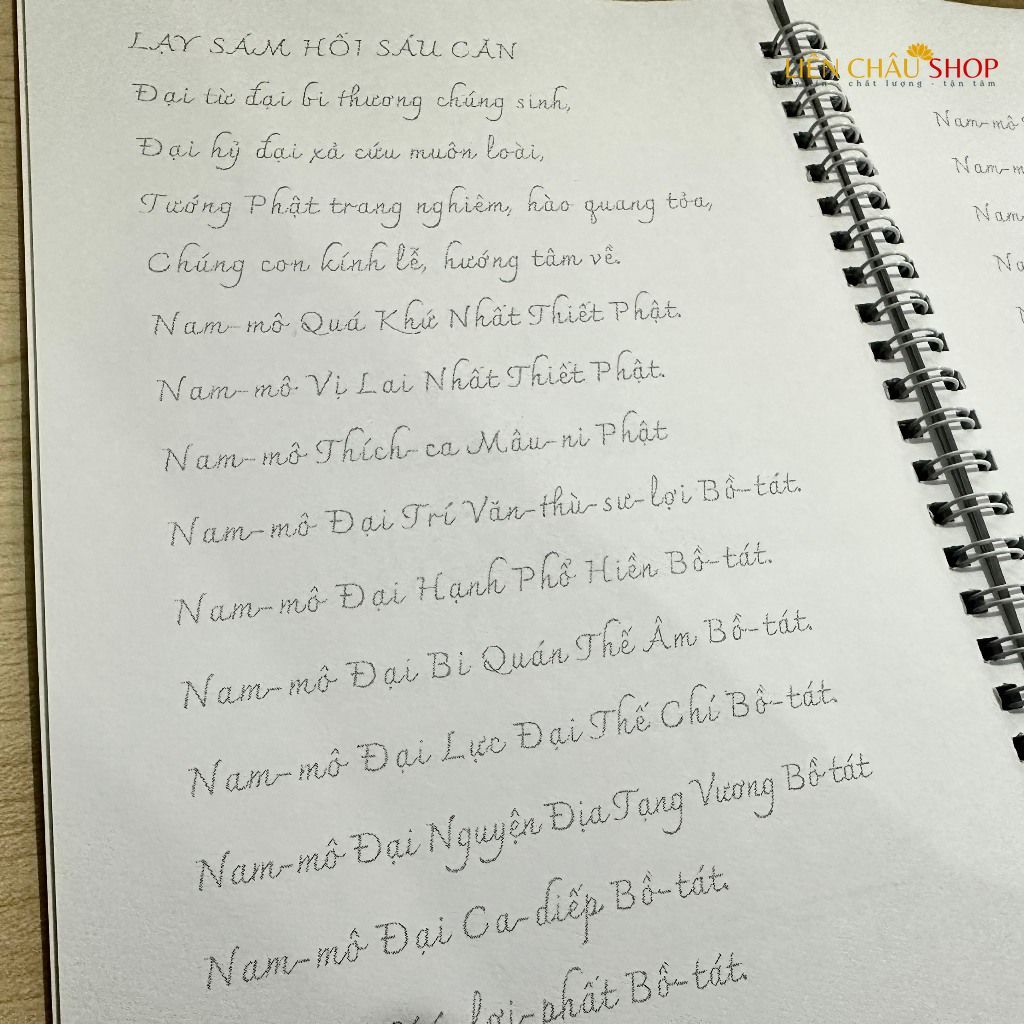 LẠY SÁM HỐI SÁU CĂN
Đại từ đại bi thương chúng sinh,
Đại hỷ đại xả cứu muôn loài,
Tướng Phật trang nghiêm, hào quang tỏa,
Chúng con kính lễ, hướng tâm về.
Nam-mô Quá Khứ Nhất Thiết Phật.
Nam-mô Vị Lai Nhất Thiết Phật.
Nam-mô Thích-ca Mâu-ni Phật
Nam-mô Đại Trí Văn-thù-sư-lợi Bồ-tát.
Nam-mô Đại Hạnh Phổ Hiền Bồ-tát.
Nam-mô Đại Bi Quán Thế Âm Bồ-tát.
Nam-mô Đại Lực Đại Thế Chí Bồ-tát.
Nam-mô Đại Nguyện Địa Tạng Vương Bồ tát
Nam-mô Đại Ca-diếp Bồ-tát.
lợi-phất Bồ-tát.
LIÊN CHÂU SHOP
chất lượng - tận tâm
Nam-mô
Nam-m
Nam-
Na